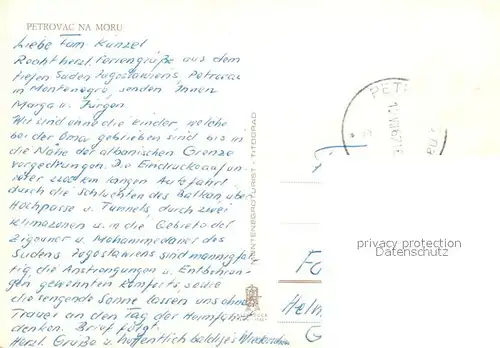 PETROVAC NA MORU
Liebe Fam. Künzel
Recht herzl. Feriengrüße aus dem
tiefen Süden Jugoslawiens, Petrovac
in Montenegro, senden Ihnen
Marga u. Jürgen.
Wir sind ohne die Kinder, welche
bei der Oma geblieben sind bis in
die Nähe der albanischen Grenze
vorgedrungen. Die Eindrücke auf un-
serer 2200 km langen Autofahrt
durch die Schluchten des Balkan, über
Hochpässe u. Tunnels, durch zwei
Klimazonen u. in die Gebiete der
Zigeuner u. Mohammedaner des
Südens Jugoslawiens sind mannigfal-
tig die Anstrengungen u. Entbehrun-
gen gewohnten Komforts, sowie
die sengende Sonne lassen uns ohne
Trauer an den Tag der Heimfahrt
denken. Brief folgt.
Herzl. Grüße u. hoffentlich baldiges Wiedersehen
MONTENEGROTURIST - TITOGRAD
PET
F
privacy protection
Datenschutz
Fa
Helm
G